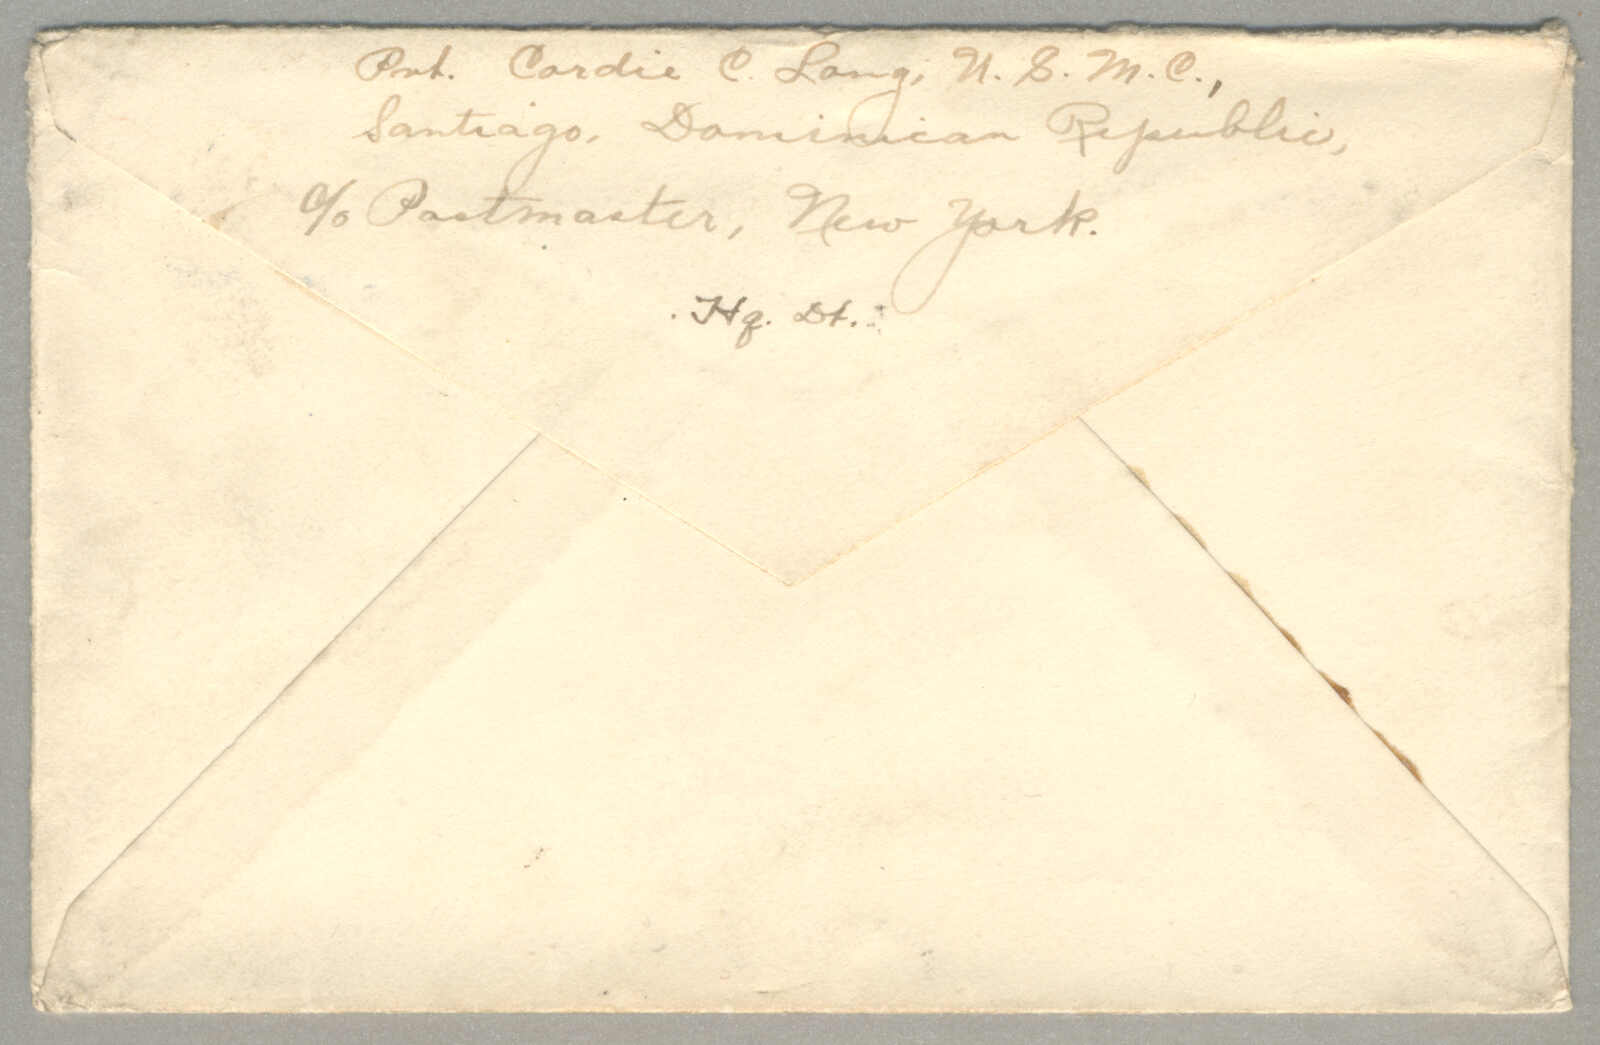 Pvt. Cordie C. Long, U.S.M.C.,
Santiago, Dominican Republic,
c/o Postmaster, New York.
Hq. Dt.